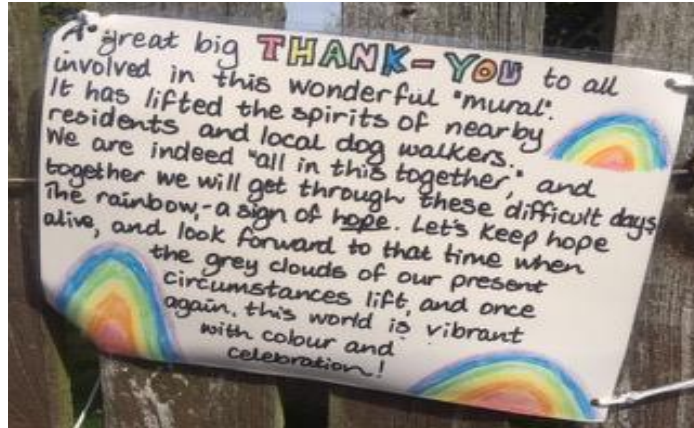 A great big THANK-YOU to all
involved in this wonderful "mural".
It has lifted the spirits of nearby
residents and local dog walkers.
We are indeed "all in this together," and
together we will get through these difficult days
The rainbow,- a sign of hope. Let's keep hope
alive, and look forward to that time when
the grey clouds of our present
circumstances lift, and once
again, this world is vibrant
with colour and
celebration!